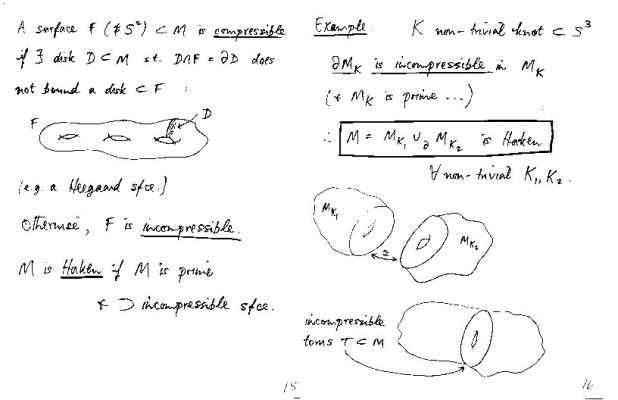 A surface F (≠ S²) ⊂ M is compressible
if ∃ disk D ⊂ M s.t. D∩F = ∂D does
not bound a disk ⊂ F :
F
D
(e.g. a Heegaard sfce.)
Otherwise, F is incompressible.
M is Haken if M is prime
& ⊃ incompressible sfce.
15
Example. K non-trivial knot ⊂ S³
∂M_K is incompressible in M_K
(& M_K is prime ...)
∴ M = M_K₁ ∪_∂ M_K₂ is Haken
∀ non-trivial K₁, K₂.
M_K₁
≅
M_K₂
incompressible
torus T ⊂ M
16